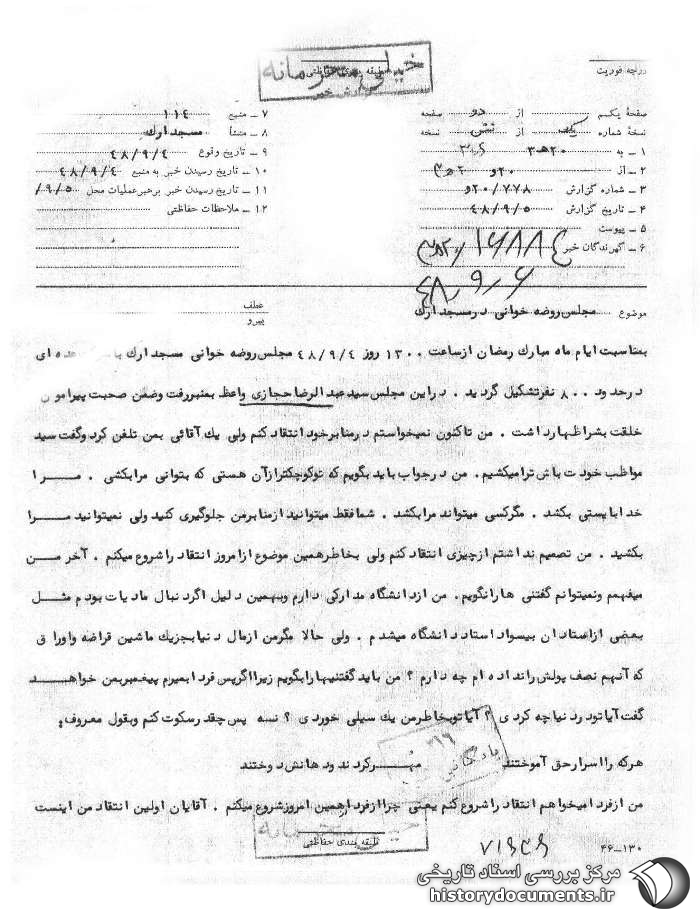 خیلی محرمانه
طبقه بندی حفاظتی
گزارش خبر
درجه فوریت
صفحهٔ یکم از دو صفحه
نسخهٔ شماره یک از شش نسخه
۱ ــ به ۲۰هـ۳
۲ ــ از ۲۰و ۲هـ۳
۳ ــ شماره گزارش ۲۰/۷۷۸و
۴ ــ تاریخ گزارش ۴۸/۹/۵
۵ ــ پیوست
۶ ــ گیرندگان خبر
۴۸ـ۹ـ۶
۷ ــ منبع ۱۱٤
۸ ــ منشأ مسجد ارك
۹ ــ تاریخ وقوع ۴۸/۹/۴
۱۰ ــ تاریخ رسیدن خبر به منبع ۴۸/۹/۴
۱۱ ــ تاریخ رسیدن خبر برهبر عملیات محل /۹/۵
۱۲ ــ ملاحظات حفاظتی
موضوع مجلس روضه خوانی در مسجد ارك
عطف
پیرو
بمناسبت ایام ماه مبارك رمضان از ساعت ۱۳۰۰ روز ۴۸/۹/۴ مجلس روضه خوانی مسجد ارك با عده ای
در حدود ۸۰۰ نفر تشکیل گردید . در این مجلس سید عبد الرضا حجازی واعظ بمنبر رفت وضمن صحبت پیرامون
خلقت بشر اظهار داشت . من تاکنون نمیخواستم در منابر خود انتقاد کنم ولی یك آقائی بمن تلفن کرد وگفت سید
مواظب خودت باش ترا میکشیم . من در جواب باید بگویم که توکوچکتر از آن هستی که بتوانی مرا بکشی . مــرا
خدا بایستی بکشد . مگر کسی میتواند مرا بکشد . شما فقط میتوانید از منابر من جلوگیری کنید ولی نمیتوانید مــرا
بکشید . من تصمیم نداشتم از چیزی انتقاد کنم ولی بخاطر همین موضوع از امروز انتقاد را شروع میکنم . آخر مــن
میفهمم ونمیتوانم گفتنی ها را نگویم. من از دانشگاه مدارکی دارم وبهمین دلیل اگر دنبال مادیات بودم مثــل
بعضی از استادان بیسواد استاد دانشگاه میشدم . ولی حالا مگر من از مال دنیا بجز یك ماشین قراضه واوراق
که آنهم نصف پولش را نداده ام چه دارم ؟ من باید گفتنیها را بگویم زیرا اگر پس فردا بمیرم پیغمبر بمن خواهــد
گفت آیا تو در دنیا چه کردی ؟ آیا تو بخاطر من یك سیلی خوردی ؟ نسه پس چقدر سکوت کنم وبقول معروف:
هرکه را اسرار حق آموختند مهــر کردند ودهانش دوختند
بایگانی
من از فردا میخواهم انتقاد را شروع کنم یعنی چرا از فردا همین امروز شروع میکنم . آقایان اولین انتقاد من اینست
خیلی محرمانه
طبقه بندی حفاظتی
۴۶ــ۱۳۰
مرکز بررسی اسناد تاریخی
historydocuments.ir